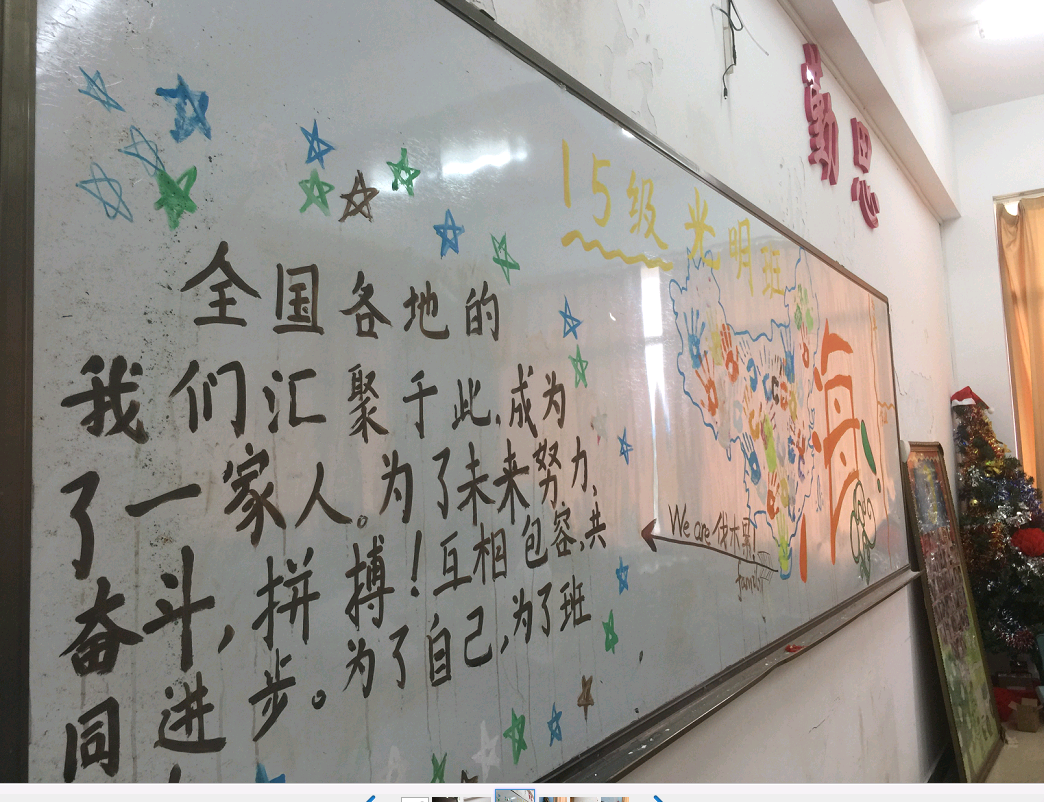 全国各地的
我们汇聚于此,成为
了一家人。为了未来努力、
奋斗,拼搏!互相包容,共
同进步。为了自己,为了班
15级光明班
We are 伐木累!
family
勤思